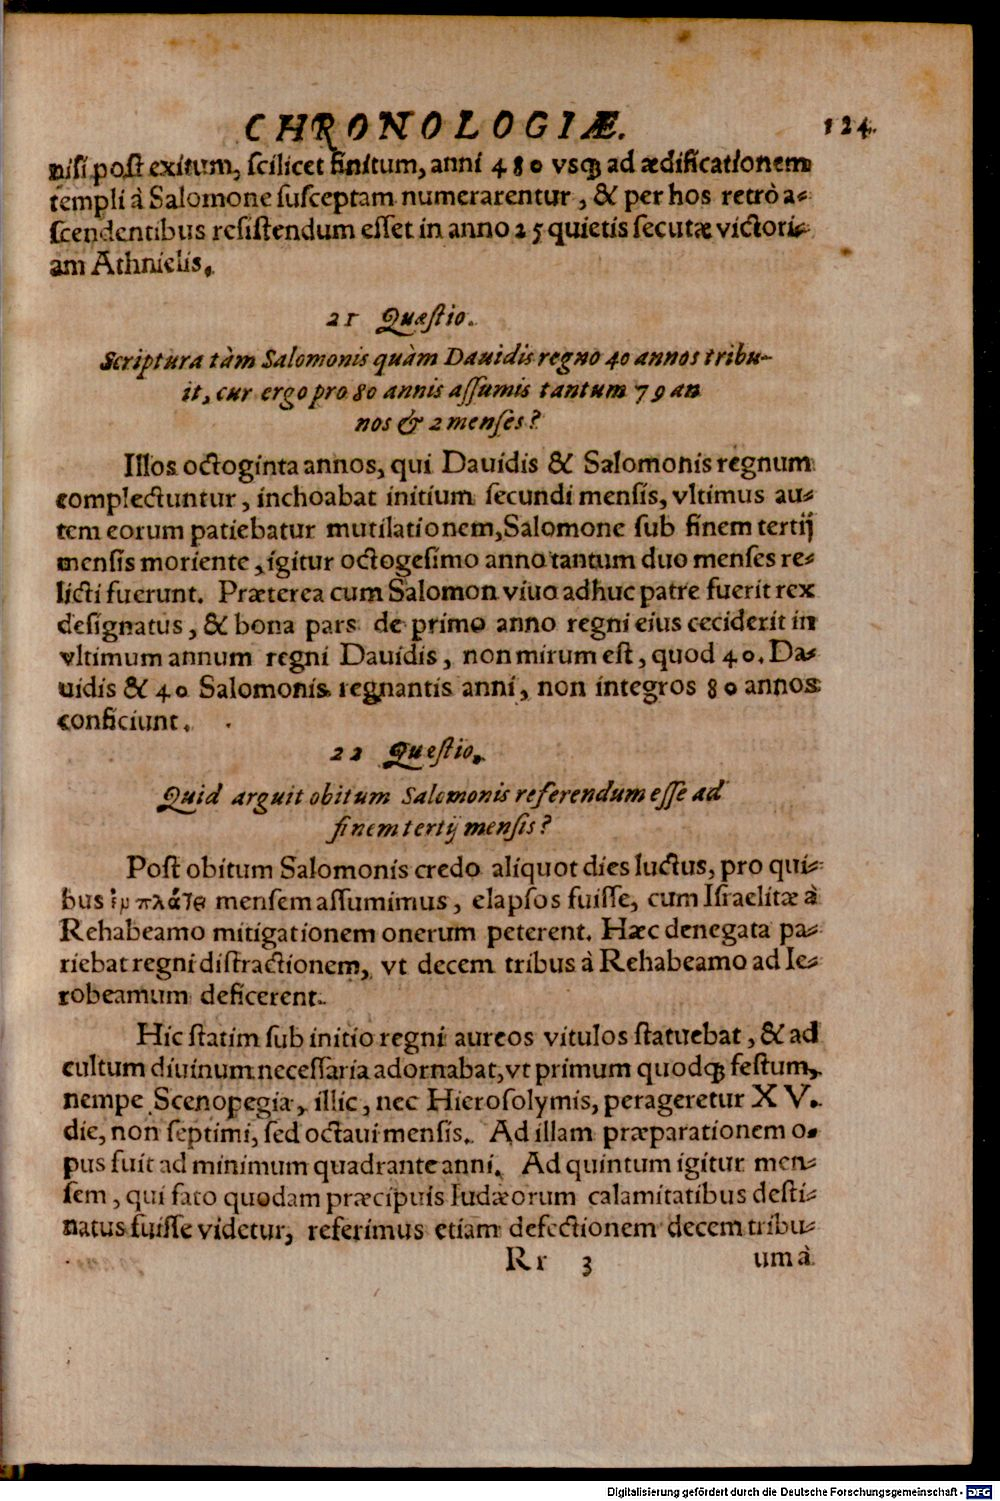 CHRONOLOGIÆ. 124.
nisi post exitum, scilicet finitum, anni 480 vsq; ad ædificationem
templi à Salomone susceptam numerarentur, & per hos retrò a-
scendentibus resistendum esset in anno 25 quietis secutæ victori-
am Athnielis.
21 Quæstio.
Scriptura tàm Salomonis quàm Dauidis regno 40 annos tribu-
it, cur ergo pro 80 annis assumis tantum 79 an
nos & 2 menses?
Illos octoginta annos, qui Dauidis & Salomonis regnum
complectuntur, inchoabat initium secundi mensis, vltimus au-
tem eorum patiebatur mutilationem, Salomone sub finem tertij
mensis moriente, igitur octogesimo anno tantum duo menses re-
licti fuerunt. Præterea cum Salomon viuo adhuc patre fuerit rex
designatus, & bona pars de primo anno regni eius ceciderit in
vltimum annum regni Dauidis, non mirum est, quod 40. Da-
uidis & 40 Salomonis regnantis anni, non integros 80 annos
conficiunt.
22 Quæstio.
Quid arguit obitum Salomonis referendum esse ad
finem tertij mensis?
Post obitum Salomonis credo aliquot dies luctus, pro qui-
bus mensem assumimus, elapsos fuisse, cum Israelitæ à
Rehabeamo mitigationem onerum peterent. Hæc denegata pa-
riebat regni distractionem, vt decem tribus à Rehabeamo ad Ie-
robeamum deficerent.
Hic statim sub initio regni aureos vitulos statuebat, & ad
cultum diuinum necessaria adornabat, vt primum quodq; festum,
nempe Scenopegia, illic, nec Hierosolymis, perageretur XV.
die, non septimi, sed octaui mensis. Ad illam præparationem o-
pus fuit ad minimum quadrante anni. Ad quintum igitur men-
sem, qui fato quodam præcipuis Iudæorum calamitatibus desti-
natus fuisse videtur, referimus etiam defectionem decem tribu-
Rr 3 um à
Digitalisierung gefördert durch die Deutsche Forschungsgemeinschaft - DFG